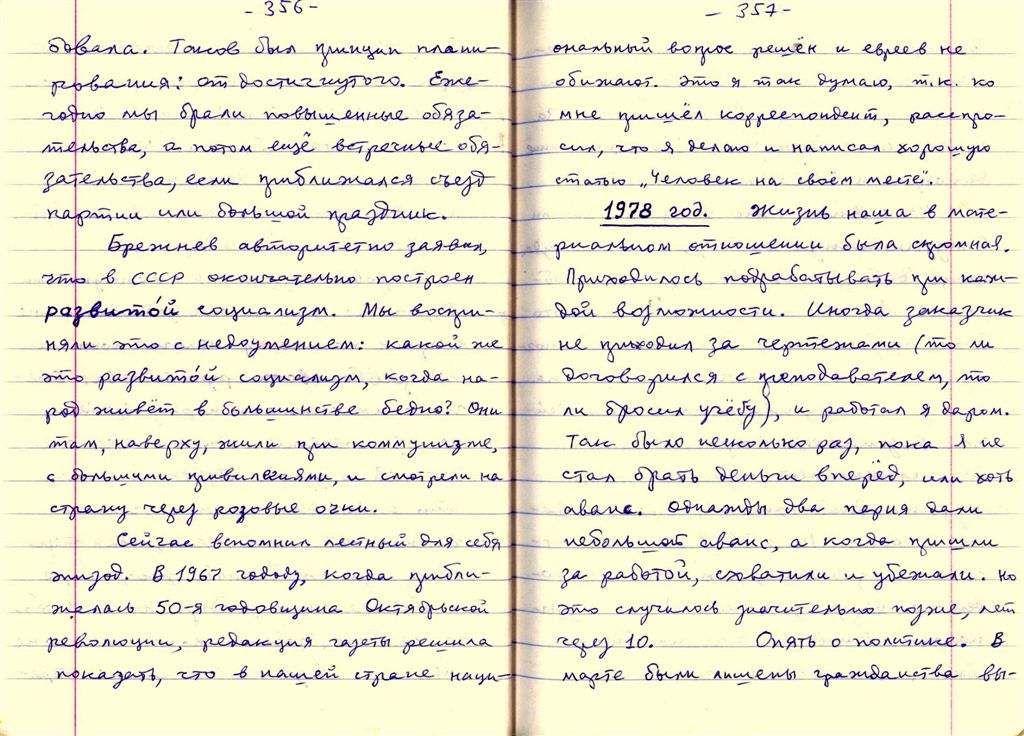 - 356 -
бовала. Таков был принцип плани-
рования: от достигнутого. Еже-
годно мы брали повышенные обяза-
тельства, а потом ещё встречные обя-
зательства, если приближался съезд
партии или большой праздник.
Брежнев авторитетно заявил,
что в СССР окончательно построен
развито́й социализм. Мы воспри-
няли это с недоумением: какой же
это развито́й социализм, когда на-
род живёт в большинстве бедно? Они
там, наверху, жили при коммунизме,
с большими привилегиями, и смотрели на
страну через розовые очки.
Сейчас вспомнил лестный для себя
эпизод. В 1967 гододу, когда прибли-
жалась 50-я годовщина Октябрьской
революции, редакция газеты решила
показать, что в нашей стране наци-
- 357 -
ональный вопрос решён и евреев не
обижают. Это я так думаю, т.к. ко
мне пришёл корреспондент, расспро-
сил, что я делаю и написал хорошую
статью „Человек на своём месте".
1978 год. Жизнь наша в мате-
риальном отношении была скромная.
Приходилось подрабатывать при каж-
дой возможности. Иногда заказчик
не приходил за чертежами (то ли
договорился с преподавателем, то
ли бросил учёбу), и работал я даром.
Так было несколько раз, пока я не
стал брать деньги вперёд, или хоть
аванс. Однажды два парня дали
небольшой аванс, а когда пришли
за работой, схватили и убежали. Но
это случилось значительно позже, лет
через 10. Опять о политике. В
марте были лишены гражданства вы-